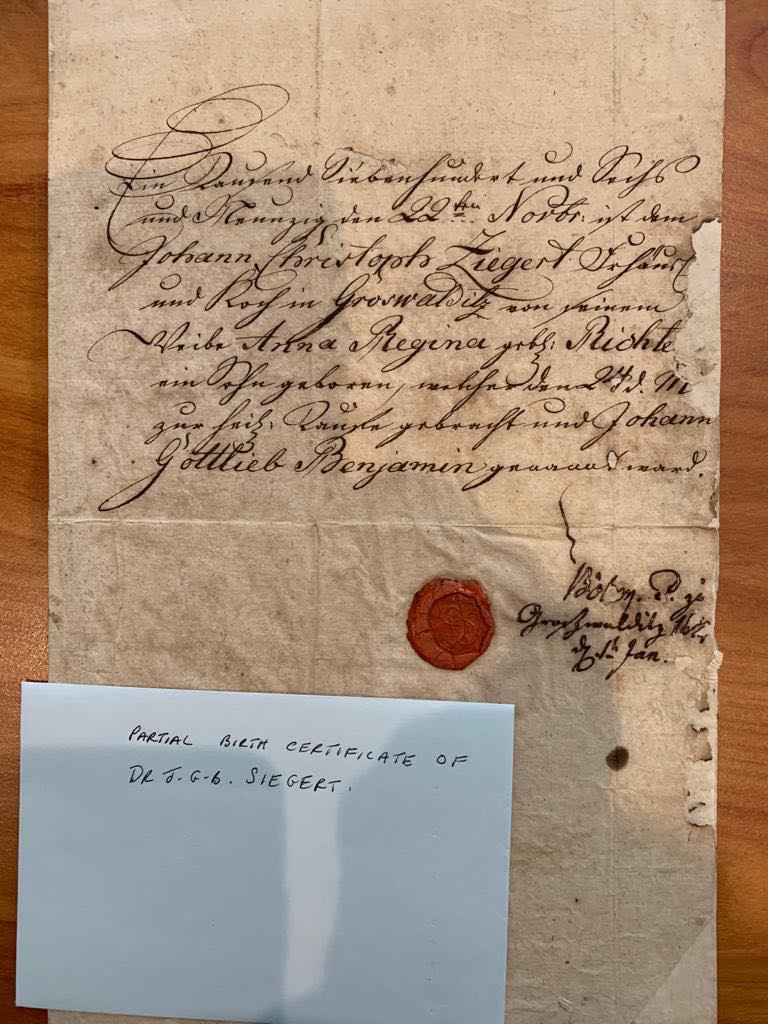 Ein Tausend Siebenhundert und Sechs
und Neunzig den 22ten Novbr: ist dem
Johann Christoph Ziegert
und Koch in Gröswalditz von seinem
Weibe Anna Regina gebh: Richte
ein Sohn geboren, welcher den 27 d. M
zur heil: Taufe gebracht und Johann
Gottlieb Benjamin genannt ward.
Groschwalditz
Jan.
PARTIAL BIRTH CERTIFICATE OF
DR J.G.B. SIEGERT.